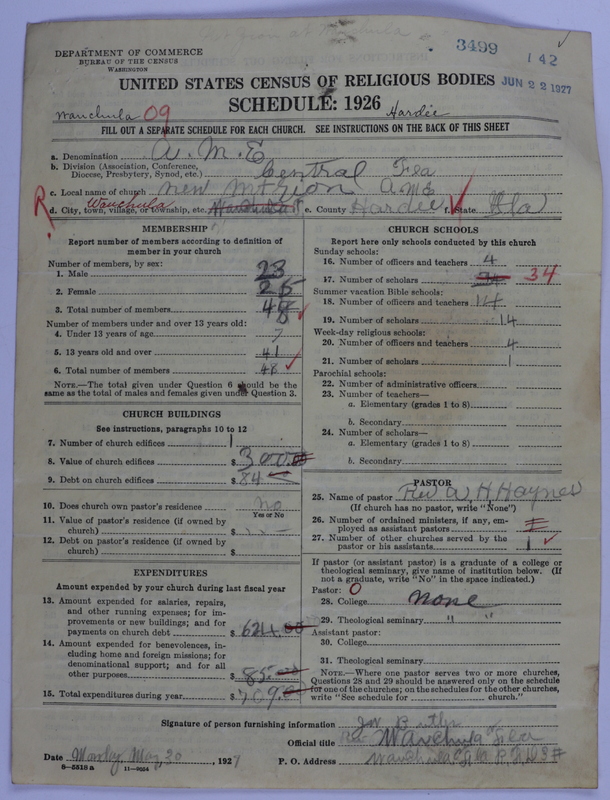 3499
142
DEPARTMENT OF COMMERCE
BUREAU OF THE CENSUS
WASHINGTON
UNITED STATES CENSUS OF RELIGIOUS BODIES
JUN 22 1927
SCHEDULE: 1926
Wauchula 09 Hardie
FILL OUT A SEPARATE SCHEDULE FOR EACH CHURCH. SEE INSTRUCTIONS ON THE BACK OF THIS SHEET
a. Denomination A. M. E
b. Division (Association, Conference, Diocese, Presbytery, Synod, etc.) Central Fla
c. Local name of church New Mt Zion A M E
R. d. City, town, village, or township, etc. Wauchula e. County Hardie f. State Fla
MEMBERSHIP
Report number of members according to definition of
member in your church
Number of members, by sex:
1. Male 23
2. Female 25
3. Total number of members 48
Number of members under and over 13 years old:
4. Under 13 years of age 7
5. 13 years old and over 41
6. Total number of members 48
NOTE.—The total given under Question 6 should be the
same as the total of males and females given under Question 3.
CHURCH BUILDINGS
See instructions, paragraphs 10 to 12
7. Number of church edifices 1
8. Value of church edifices $ 300.00
9. Debt on church edifices $ 84
10. Does church own pastor's residence No
Yes or No
11. Value of pastor's residence (if owned by
church) $
12. Debt on pastor's residence (if owned by
church) $
EXPENDITURES
Amount expended by church during last fiscal year
13. Amount expended for salaries, repairs,
and other running expenses; for im-
provements or new buildings; and for
payments on church debt $ 624.00
14. Amount expended for benevolences, in-
cluding home and foreign missions; for
denominational support; and for all
other purposes $ 85.00
15. Total expenditures during year $ 709.00
CHURCH SCHOOLS
Report here only schools conducted by this church
Sunday schools:
16. Number of officers and teachers 4
17. Number of scholars 34 34
Summer vacation Bible schools:
18. Number of officers and teachers 14
19. Number of scholars 14
Week-day religious schools:
20. Number of officers and teachers 4
21. Number of scholars 1
Parochial schools:
22. Number of administrative officers
23. Number of teachers—
a. Elementary (grades 1 to 8)
b. Secondary
24. Number of scholars—
a. Elementary (grades 1 to 8)
b. Secondary
PASTOR
25. Name of pastor Rev. A H Haynes
(If church has no pastor, write "None")
26. Number of ordained ministers, if any, em-
ployed as assistant pastors
27. Number of other churches served by the
pastor or his assistants 1
If pastor (or assistant pastor) is a graduate of a college or
theological seminary, give name of institution below. (If
not a graduate, write "No" in the space indicated.)
Pastor: 0
28. College None
29. Theological seminary " "
Assistant pastor:
30. College
31. Theological seminary
NOTE.—Where one pastor serves two or more churches,
Questions 28 and 29 should be answered only on the schedule
for one of the churches; on the schedules for the other churches,
write "See schedule for church."
Signature of person furnishing information
Official title Rev Wauchula Fla
Date May 30, 1927 P. O. Address Wauchula Fla
8—5318a 11—9054